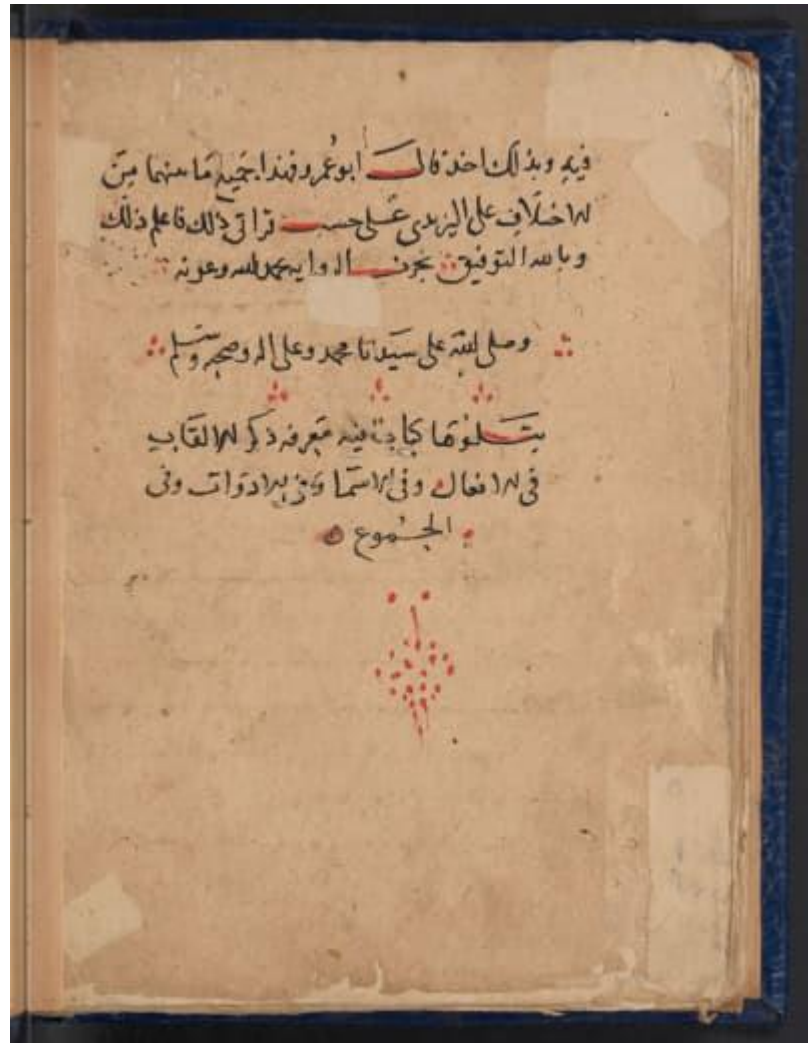 فيه وبذلك اخذ قال ابو عمرو فهذا جميع ما بينهما من
الاختلاف على اليزيدي على حسب قراتي ذلك فاعلم ذلك
وبالله التوفيق نجزت الرواية بحمد الله وعونه
وصلى الله على سيدنا محمد وعلى اله وصحبه وسلم
يتلوها كتاب فيه معرفة ذكر الالقاب
في الافعال وفي الاسما وفي الادوات وفي
الجموع